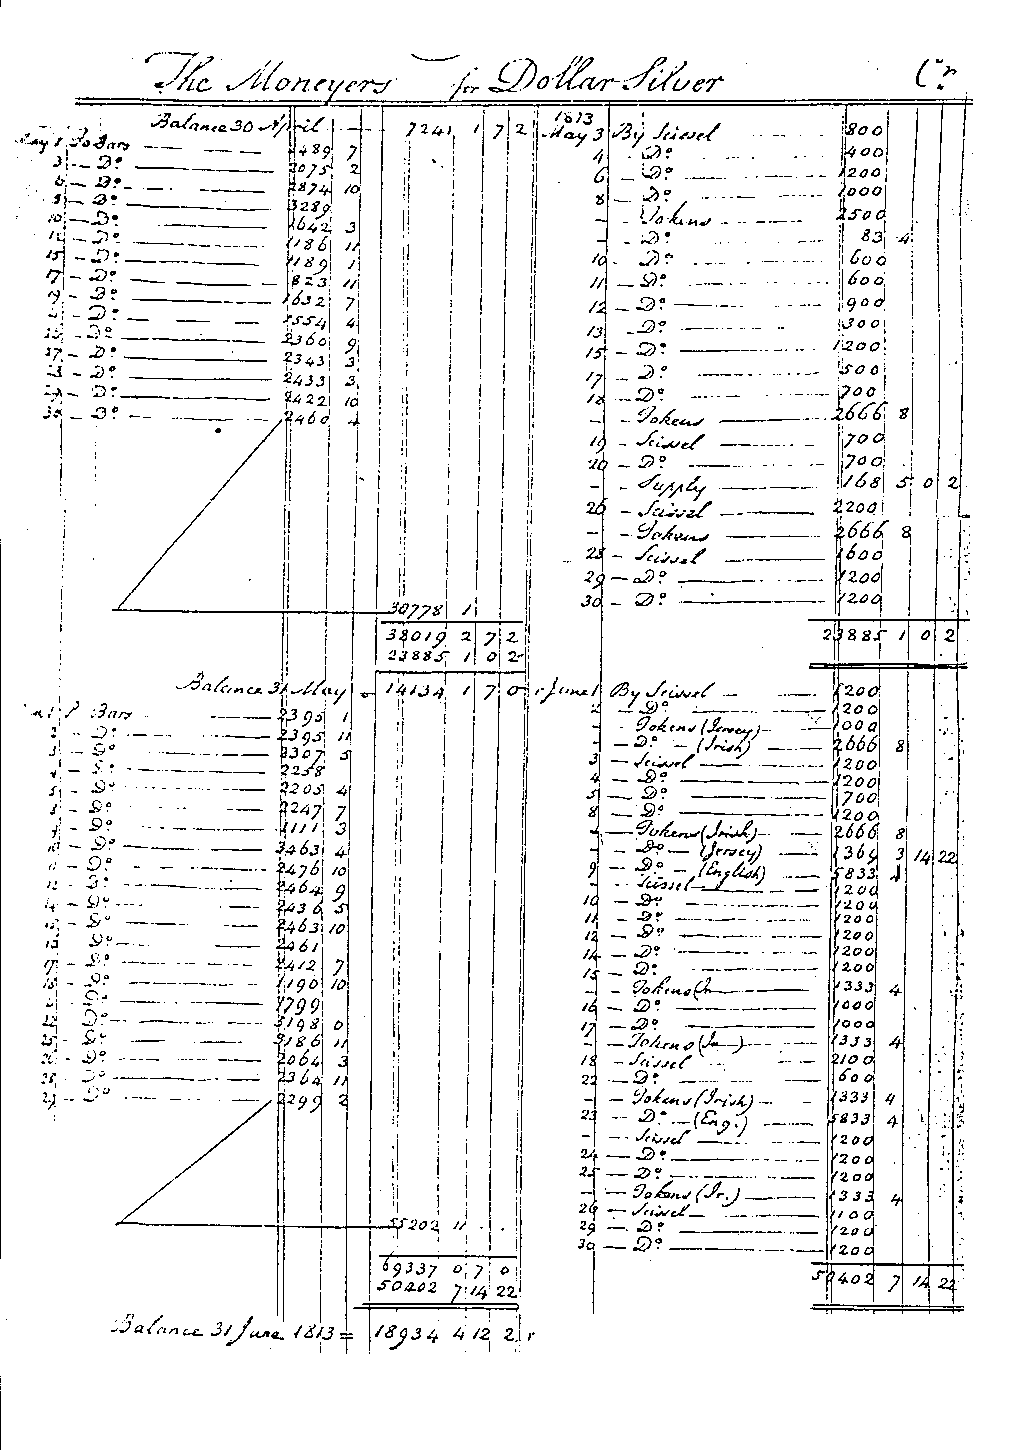 The Moneyers for Dollar Silver Cr.
Balance 30 April 7241 1 7 2
May 1 To Bars 2489 7
3 Do 2075 2
6 Do 2874 10
8 Do 3289
10 Do 2642 3
12 Do 1186 11
15 Do 1189 1
17 Do 823 11
19 Do 1632 7
Do 2554 4
Do 2360 9
27 Do 2343 3
Do 2433 3
Do 2422 10
Do 2460 4
30778 1
38019 2 7 2
23885 1 0 2
Balance 31 May = 14134 1 7 0
1 Bars 2395 1
2 Do 2395 11
Do 2307 5
4 Do 2258
5 Do 2205 4
Do 2247 7
Do 1111 3
Do 3463 4
Do 2476 10
12 Do 2464 9
14 Do 2436 5
Do 2463 10
Do 2461
17 Do 2412 7
18 Do 1190 10
Do 1799
22 Do 3198 0
25 Do 3186 11
26 Do 2064 3
28 Do 2364 11
29 Do 2299 2
55202 11
69337 0 7 0
50402 7 14 22
Balance 31 June 1813 = 18934 4 12 2
1813
May 3 By Scissel 800
4 Do 400
6 Do 1200
8 Do 1000
- Tokens 2500
- Do 83 4
10 Do 600
11 Do 600
12 Do 900
13 Do 300
15 Do 1200
17 Do 500
18 Do 700
- Tokens 2666 8
19 Scissel 700
20 Do 700
- Supply 168 5 0 2
26 Scissel 2200
- Tokens 2666 8
28 Scissel 1600
29 Do 1200
30 Do 1200
23885 1 0 2
June 1 By Scissel 1200
2 Do 1200
- Tokens (Jersey) 1000
- Do (Irish) 2666 8
3 Scissel 1200
4 Do 1200
5 Do 700
8 Do 1200
- Tokens (Irish) 2666 8
- Do (Jersey) 1369 3 14 22
9 Do (English) 5833 4
- Scissel 1200
10 Do 1200
11 Do 1200
12 Do 1200
14 Do 1200
15 Do 1200
- Tokens (Ir 1333 4
16 Do 1000
17 Do 1000
- Tokens (Ir) 1333 4
18 Scissel 2100
22 Do 600
- Tokens (Irish) 1333 4
23 Do (Eng.) 5833 4
- Scissel 1200
24 Do 1200
25 Do 1200
- Tokens (Ir.) 1333 4
26 Scissel 1100
29 Do 1200
30 Do 1200
50402 7 14 22